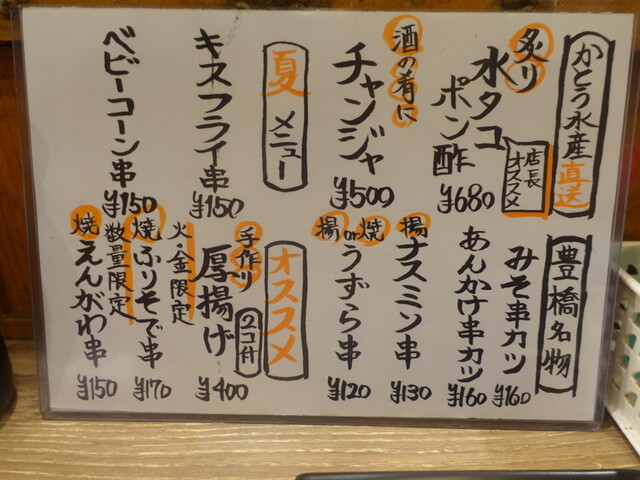 かとう水産直送
店長オススメ
炙り
水タコ
ポン酢
¥680
酒の肴に
チャンジャ
¥500
夏メニュー
キスフライ串
¥150
ベビーコーン串
¥150
豊橋名物
みそ串カツ
¥160
あんかけ串カツ
¥160
揚ナスミソ串
¥130
揚or焼
うずら串
¥120
オススメ
手作り
厚揚げ
2コ付
¥400
火・金限定
焼ふりそで串
¥170
数量限定
焼えんがわ串
¥150